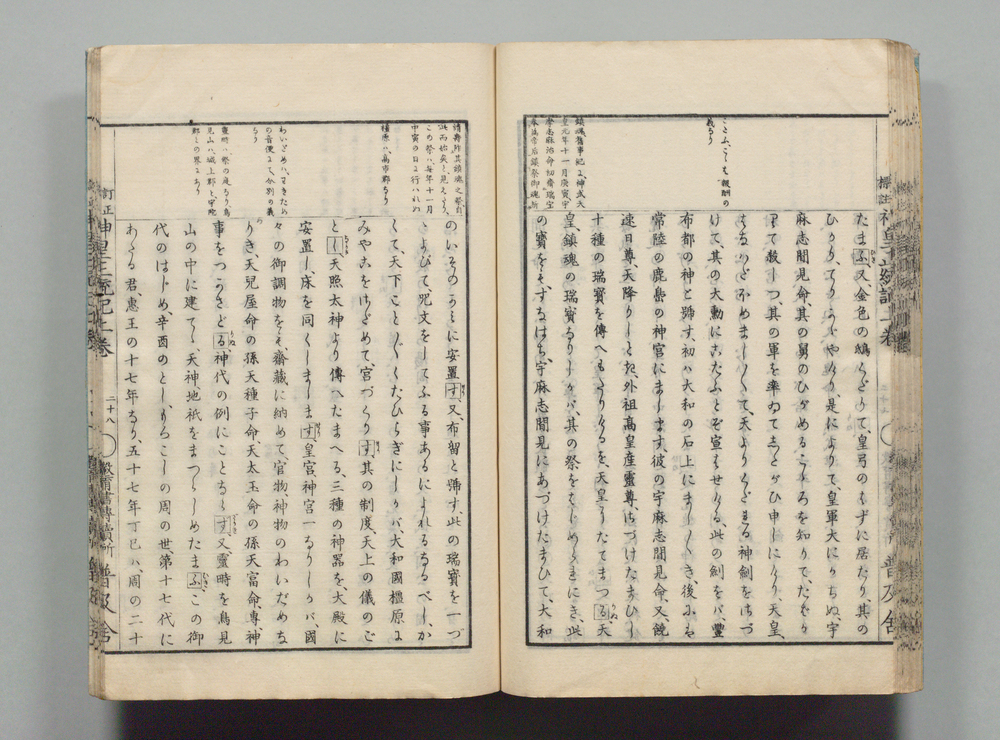 たまふ又金色の鵄くだりて皇弓のはずに居たり、其の
ひかりてりかゞやけり、是によりて、皇軍大にかちぬ、宇
麻志間見命、其の舅のひがめるこゝろを知りて、たばか
りて殺しつ、其の軍を率ゐてまうでしたがひ申しにけり、天皇、
はなはだほめましくて、天よりくだれる神劍をさづ
けて、其の大勳にこたふとぞ宣はせける、此の劍をバ、豐
布都の神と號す、初ハ大和の石上にましくき、後にハ
常陸の鹿島の神宮にまします、彼の宇麻志間見命、又、饒
速日尊、天降りしとき、外祖高皇産靈尊、さづけたまひし
十種の瑞寶を傳へもたりけるを、天皇にたてまつる、天
皇、鎭魂の瑞寶なりしかバ、其の祭をはじめらきにき、此
の寶をも、すなはち、宇麻志間見にあづけたまひて、大和
鎭魂舊事紀に神武天
皇元年十一月庚寅宇
摩志麻治命初齋瑞寶
奉爲帝后鎭祭御魂祈
のいそのかみに安置す、又、布留と號す、此の瑞寶を一づ
つよびて、咒文をしてふる事あるによれるなるべし、か
くて、天下ことくくたひらぎにしかバ、大和國橿原に
みやこをさだめて、宮づくりす、其の制度天上の儀のご
とし、天照太神より傳へたまへる、三種の神器を大殿に
安置し床を同くしまします、皇宮、神宮一なりしかバ、國
々の御調物をも、齋藏に納めて、官物、神物のわいだめな
かりき、天兒屋命の孫天種子命、天太玉命の孫天富命、專神
事をつかさどる、神代の例にことならず、又、靈畤を鳥見
山の中に建てゝ、天神、地祇をまつらしめたまふ、この御
代のはじめ、辛酉のとし、もろこしの周の世第十七代に
あたる君、惠王の十七年なり、五十七年丁巳ハ、周の二十
この祭ハ、毎年十一月
中寅の日に行ハれぬ
橿原ハ、高市郡なり
わいだめハ、わきため
の音便にて、分別の義
なり
靈畤ハ、祭の庭なり、鳥
見山ハ、城上郡と宇陀
郡との界にあり
訂正神皇正統記上卷
二十八
普及舍